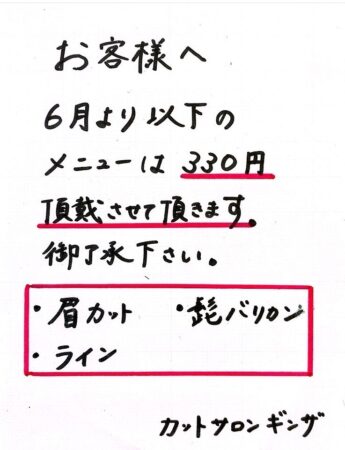 お客様へ
6月より以下の
メニューは 330円
頂戴させて頂きます。
御了承下さい。
・眉カット ・髭バリカン
・ライン
カットサロンギンザ